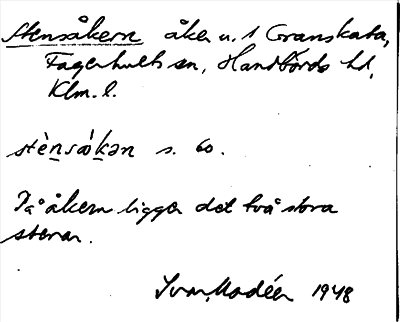 Stensåkern åker u. 1 Granskata,
Fagerhults sn, Handbörds hd,
Klm. l.
stènså̀kən s. 60.
På åkern ligger det två stora
stenar.
Ivar Modéer 1948